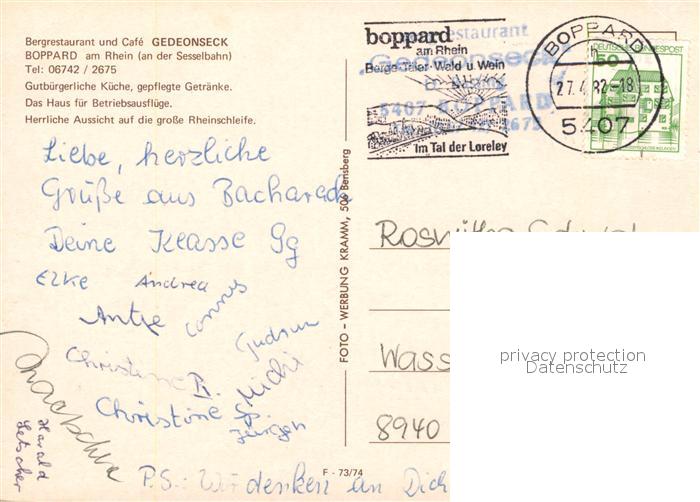 Bergrestaurant und Café GEDEONSECK
BOPPARD am Rhein (an der Sesselbahn)
Tel: 06742 / 2675
Gutbürgerliche Küche, gepflegte Getränke.
Das Haus für Betriebsausflüge.
Herrliche Aussicht auf die große Rheinschleife.
boppard
am Rhein
Berge·Täler·Wald u. Wein
Im Tal der Loreley
restaurant
"Gedeonseck"
5407 BOPPARD
BOPPARD
h
27.4.82-18
5407
DEUTSCHE BUNDESPOST
50
Liebe, herzliche
Grüße aus Bacharach
Deine Klasse 9g
Elke Andrea
Antje Connes
Gudrun
Christine R. Michi
Christine Sp.
Jürgen
Harald
Letscher
P.S.: Wir denken an Dich
FOTO - WERBUNG KRAMM, 506 Bensberg
F - 73/74
Wass
8940
privacy protection
Datenschutz